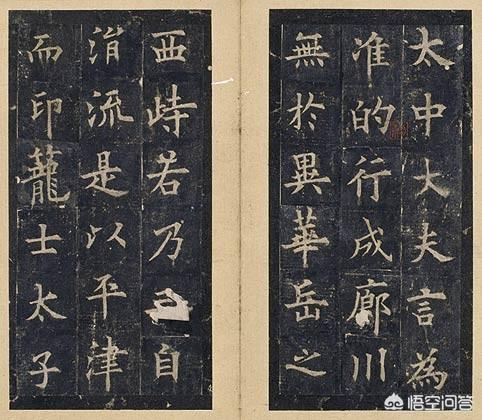 太中大夫言為
准的行成廊川
無於異華岳之
西峙若乃自
涓流是以平津
而印蘢士太子
悟空问答